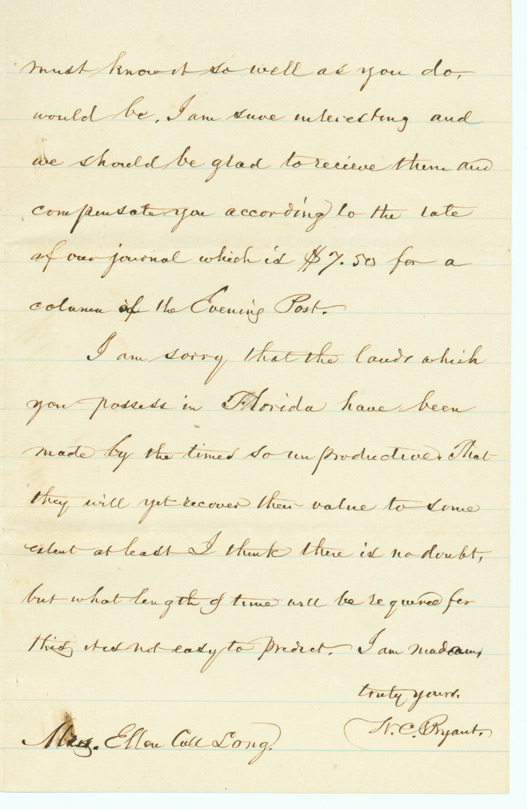 must know it so well as you do,
would be, I am sure interesting and
we should be glad to recieve them and
compensate you according to the rate
of our journal which is $7.50 for a
column of the Evening Post.
I am sorry that the lands which
you possess in Florida have been
made by the times so unproductive. That
they will yet recover their value to some
extent at least I think there is no doubt,
but what length of time will be required for
this, it is not easy to predict. I am madam,
truly yours.
W. C. Bryant.
Mrs. Ellen Call Long.